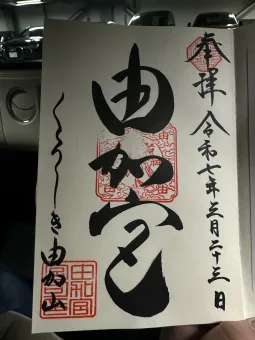 奉拝 令和七年三月二十三日
由加宮
くらしき由加山